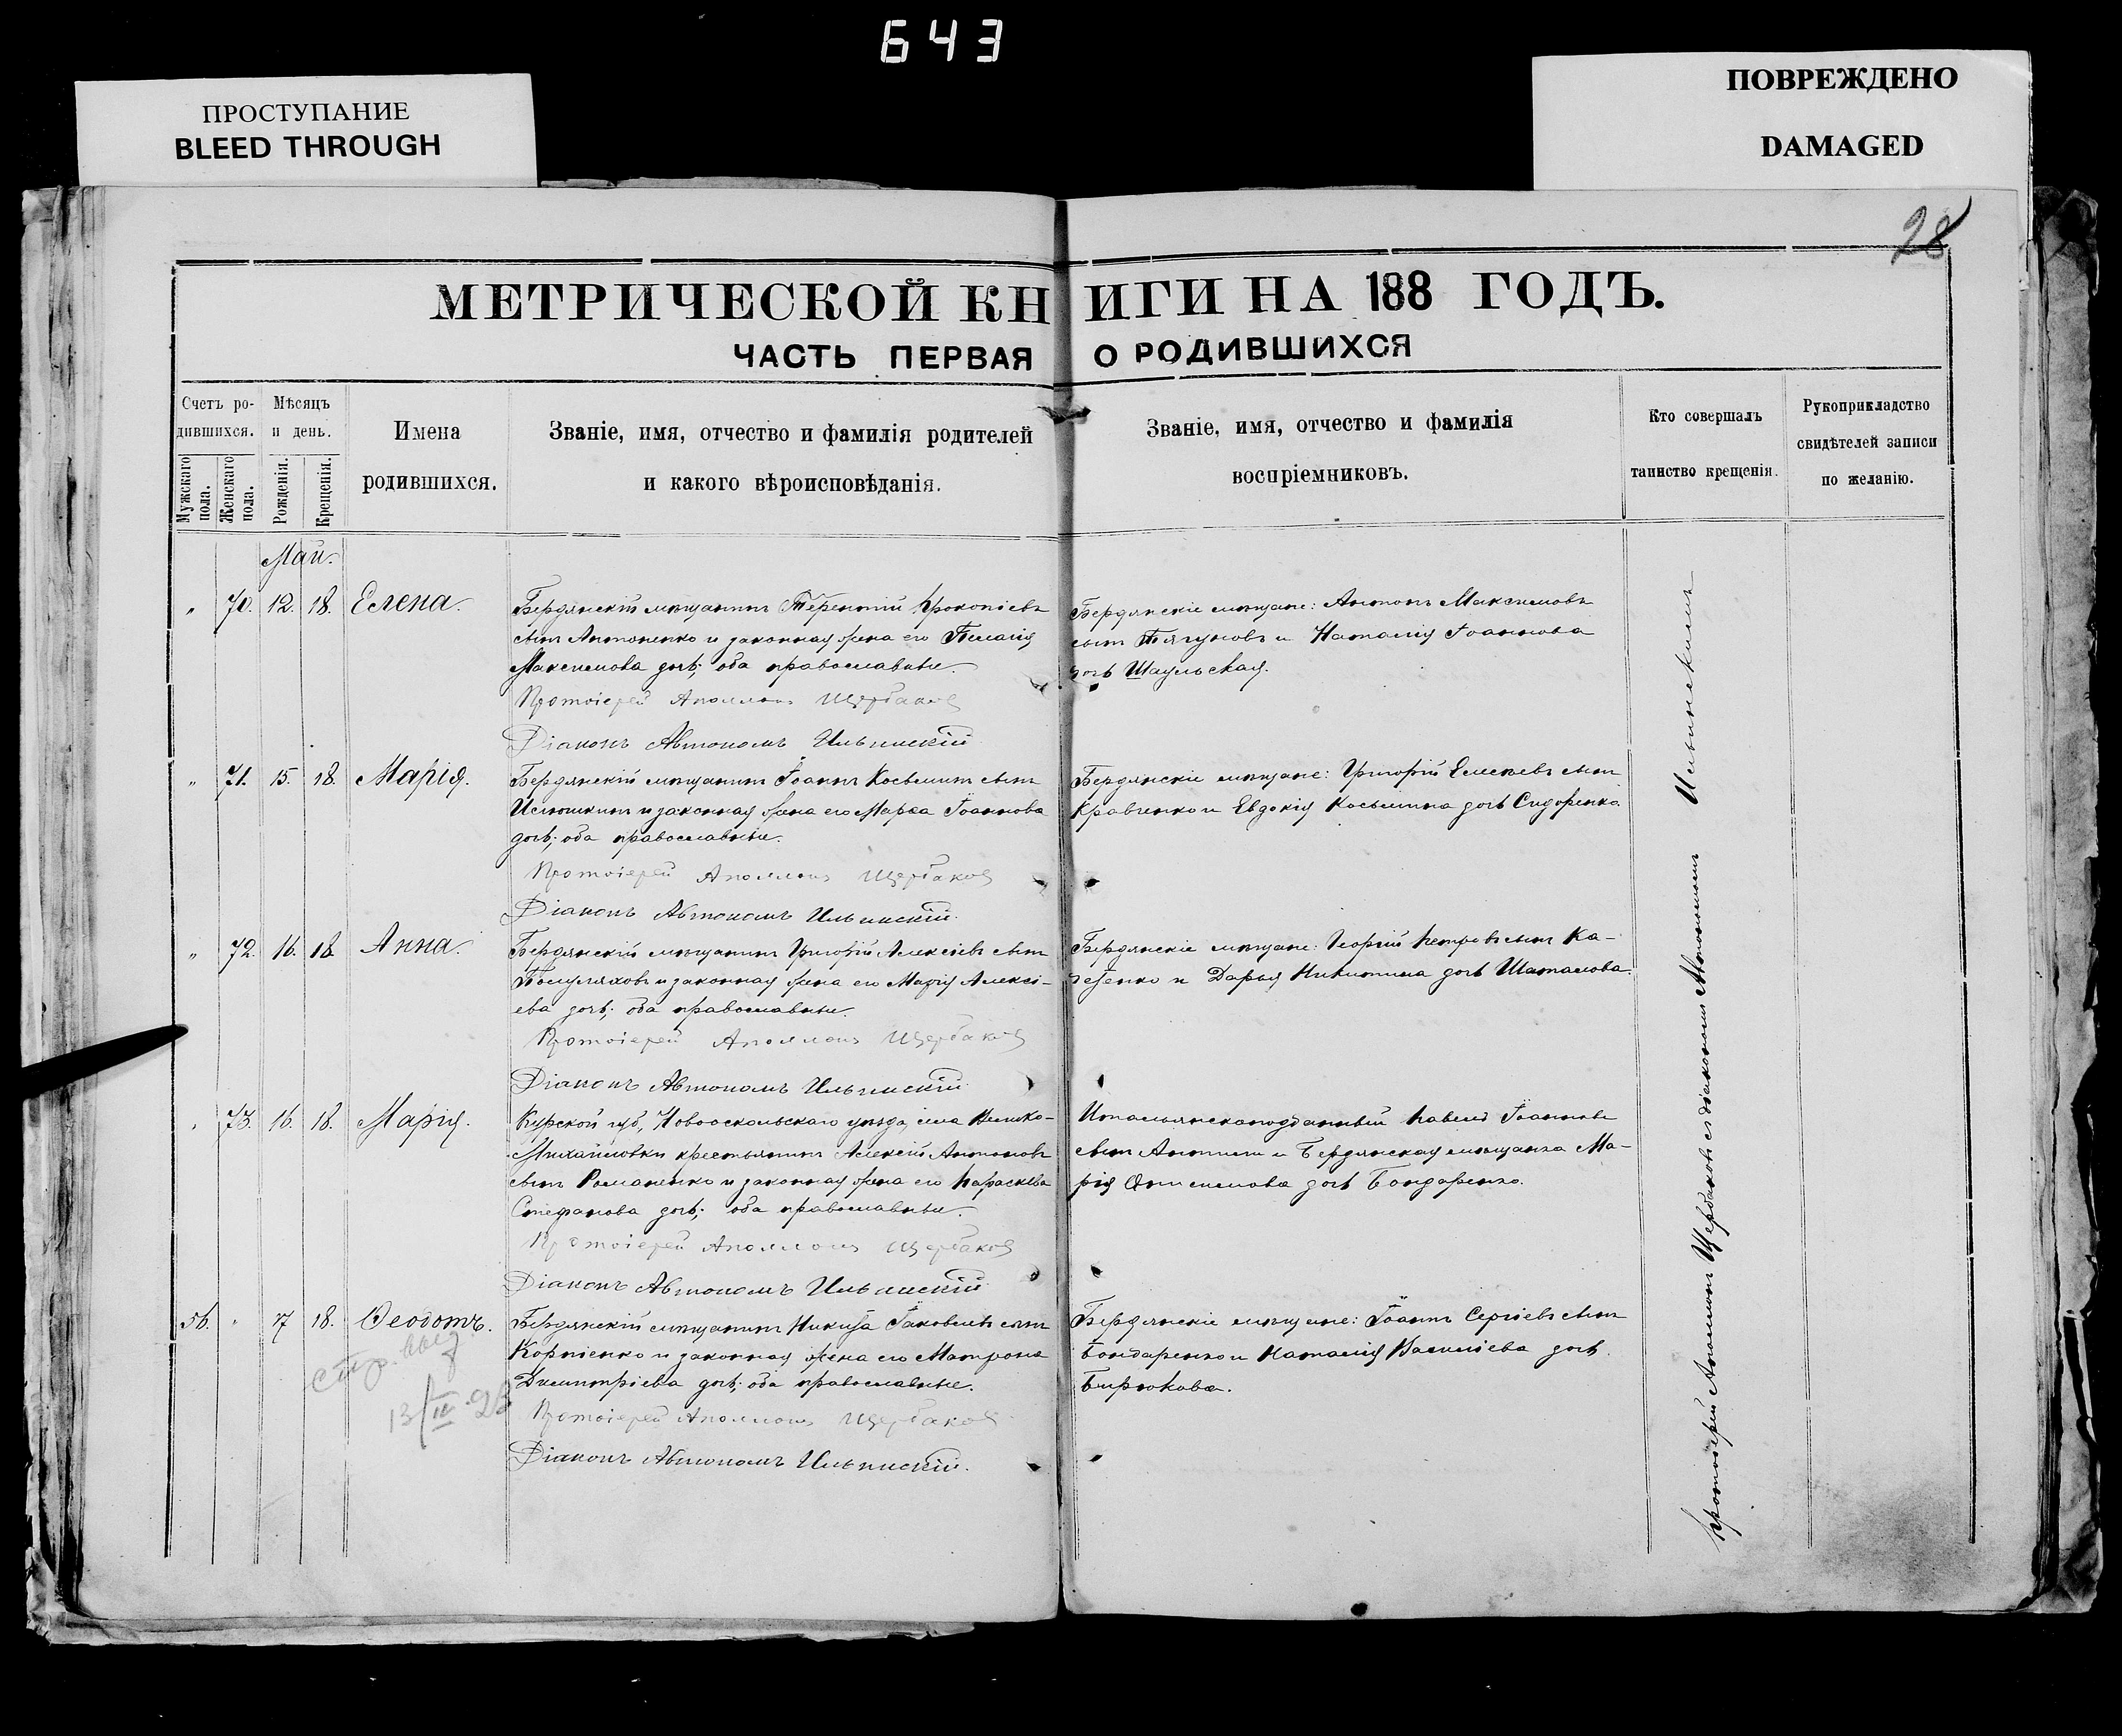 643
ПРОСТУПАНИЕ
BLEED THROUGH
ПОВРЕЖДЕНО
DAMAGED
28
МЕТРИЧЕСКОЙ КНИГИ НА 188 ГОДЪ.
ЧАСТЬ ПЕРВАЯ О РОДИВШИХСЯ
Счетъ родившихся.
Мужскаго пола.
Женскаго пола.
Мѣсяцъ и день.
Рожденія.
Крещенія.
Имена
родившихся.
Званіе, имя, отчество и фамилія родителей
и какого вѣроисповѣданія.
Званіе, имя, отчество и фамилія
воспріемниковъ.
Кто совершалъ
таинство крещенія.
Рукоприкладство
свидѣтелей записи
по желанію.
Май.
" 70. 12. 18. Елена.
Бердянскій мѣщанинъ Терентій Прокопіевъ
сынъ Антоненко и законная жена его Пелагія
Максимова дочь; оба православные.
Протоіерей Аполлонъ Щербаковъ
Діаконъ Автономъ Ильинскій
Бердянскіе мѣщане: Антонъ Максимовъ
сынъ и Наталія Іоаннова
дочь
" 71. 15. 18. Марія.
Бердянскій мѣщанинъ Іоаннъ Косьминъ сынъ
и законная жена его Марѳа Іоаннова
дочь; оба православные.
Протоіерей Аполлонъ Щербаковъ
Діаконъ Автономъ Ильинскій.
Бердянскіе мѣщане: Григорій сынъ
Кравченко и Евдокія Косьмина дочь Сидоренко.
" 72. 16. 18 Анна.
Бердянскій мѣщанинъ Григорій Алексіевъ сынъ
и законная жена его Марія Алексі-
ева дочь; оба православные.
Протоіерей Аполлонъ Щербаковъ
Діаконъ Автономъ Ильинскій
Бердянскіе мѣщане: Георгій Петровъ сынъ Ка-
и Дарья Никитина дочь Шаталова.
" 73. 16. 18. Марія.
Курской губ., Новооскольскаго уѣзда, села Велико-
Михайловки крестьянинъ Алексій Антоновъ
сынъ Романенко и законная жена его Параскева
Стефанова дочь; оба православные.
Протоіерей Аполлонъ Щербаковъ
Діаконъ Автономъ Ильинскій
Итальянскоподданный Павелъ Іоанновъ
сынъ и Бердянская мѣщанка Ма-
рія Онисимова дочь Бондаренко.
56. " 17 18. Ѳеодотъ.
Бердянскій мѣщанинъ Никита Іаковлевъ сынъ
Корніенко и законная жена его Матрона
Димитріева дочь; оба православные.
Протоіерей Аполлонъ Щербаковъ
Діаконъ Автономъ Ильинскій.
Бердянскіе мѣщане: Іоаннъ Сергіевъ сынъ
Бондаренко и Наталія Василіева дочь
Бирюкова.
13/IV-23
Протоіерей Аполлонъ Щербаковъ съ діакономъ Автономомъ Ильинскимъ